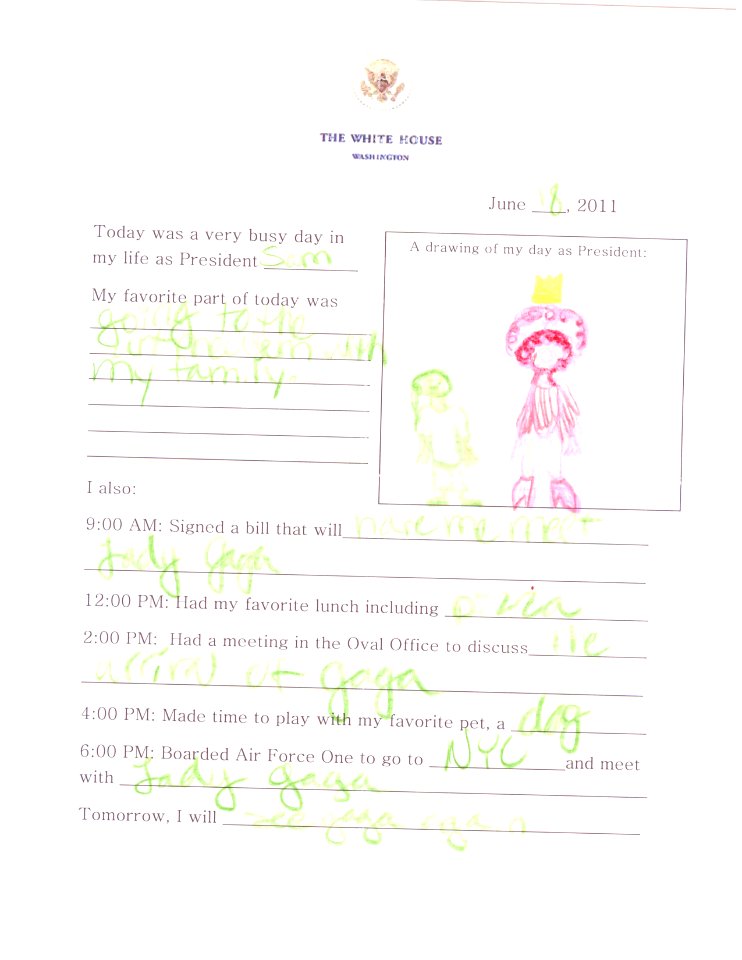 THE WHITE HOUSE
WASHINGTON
June 18, 2011
Today was a very busy day in
my life as President Sam
My favorite part of today was
going to the
with
my family.
A drawing of my day as President:
I also:
9:00 AM: Signed a bill that will make me meet
Lady Gaga
12:00 PM: Had my favorite lunch including
2:00 PM: Had a meeting in the Oval Office to discuss the
arrival of gaga
4:00 PM: Made time to play with my favorite pet, a dog
6:00 PM: Boarded Air Force One to go to NYC and meet
with Lady gaga
Tomorrow, I will see gaga again